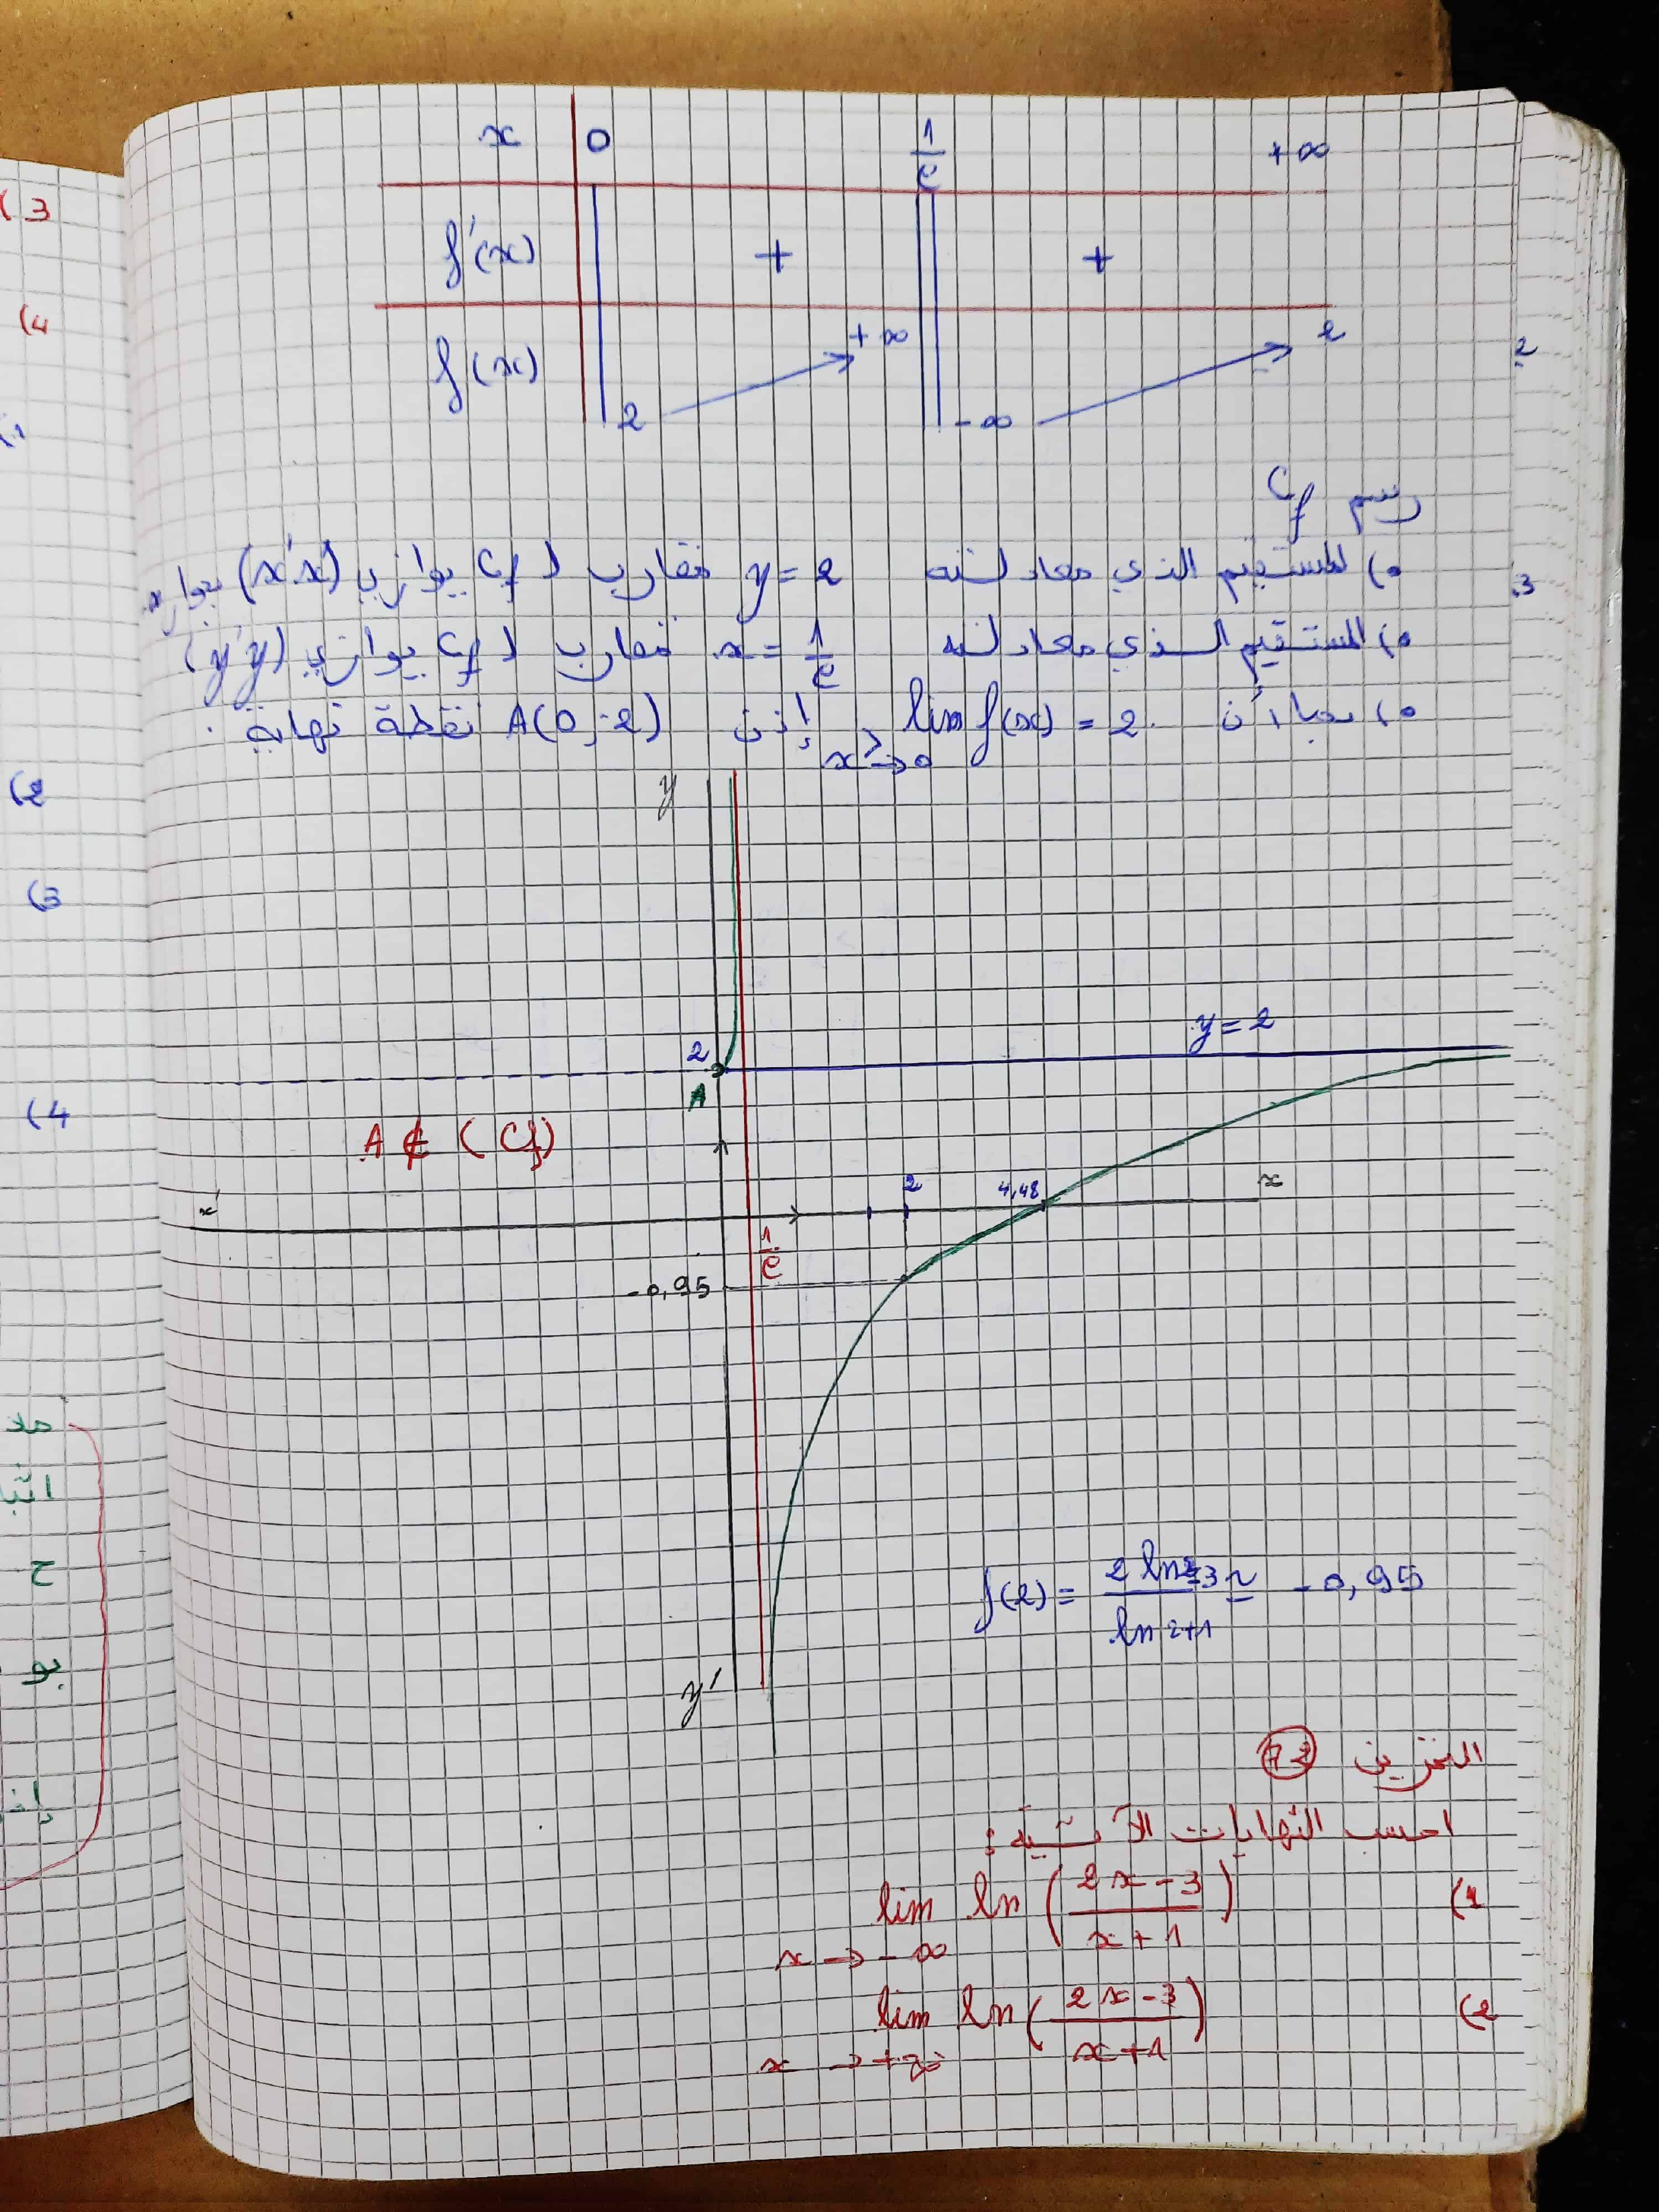 x 0 1/e +∞
f'(x) + +
f(x) 2 +∞ -∞ 2
رسم Cf
•) المستقيم الذي معادلته y = 2 مقارب لـ Cf يوازي (x'x) بجوار ∞
•) المستقيم الذي معادلته x = 1/e مقارب لـ Cf يوازي (y'y)
•) بما أن lim f(x) = 2 إذن A(0; 2) نقطة نهاية
x >→ 0
y
y = 2
2
A
A ∉ (Cf)
x' 2 4,48 x
1/e
-0,95
f(2) = (2 ln 2 - 3)/(ln 2 + 1) ≃ -0,95
y'
التمرين
احسب النهايات الآتية :
1) lim ln((2x - 3)/(x + 1))
x → -∞
2) lim ln((2x - 3)/(x + 1))
x → +∞
3)
4)
2)
3)
4)
ح
بو
2
3